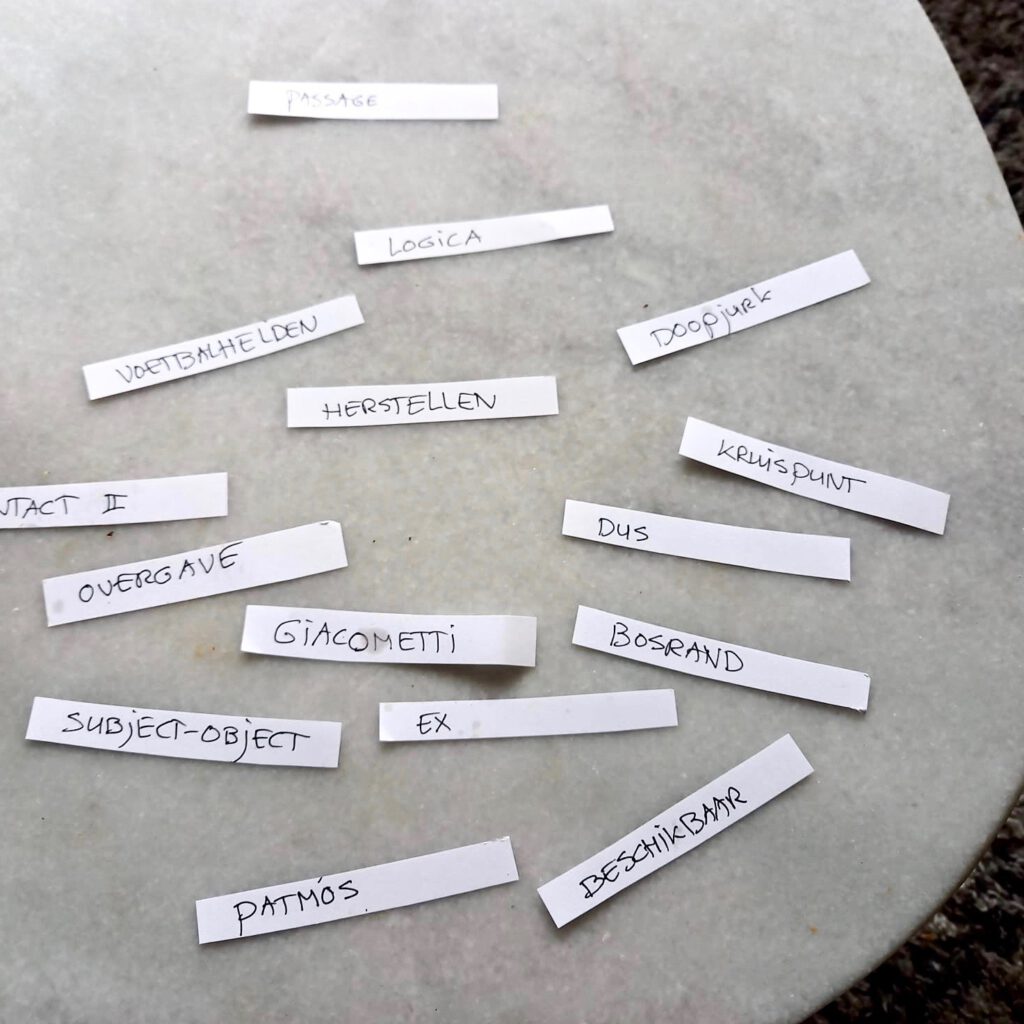 PASSAGE
LOGICA
DOOPJURK
VOETBALHELDEN
HERSTELLEN
KRUISPUNT
NTACT II
DUS
OVERGAVE
GIACOMETTI
BOSRAND
SUBJECT-OBJECT
EX
BESCHIKBAAR
PATMÓS